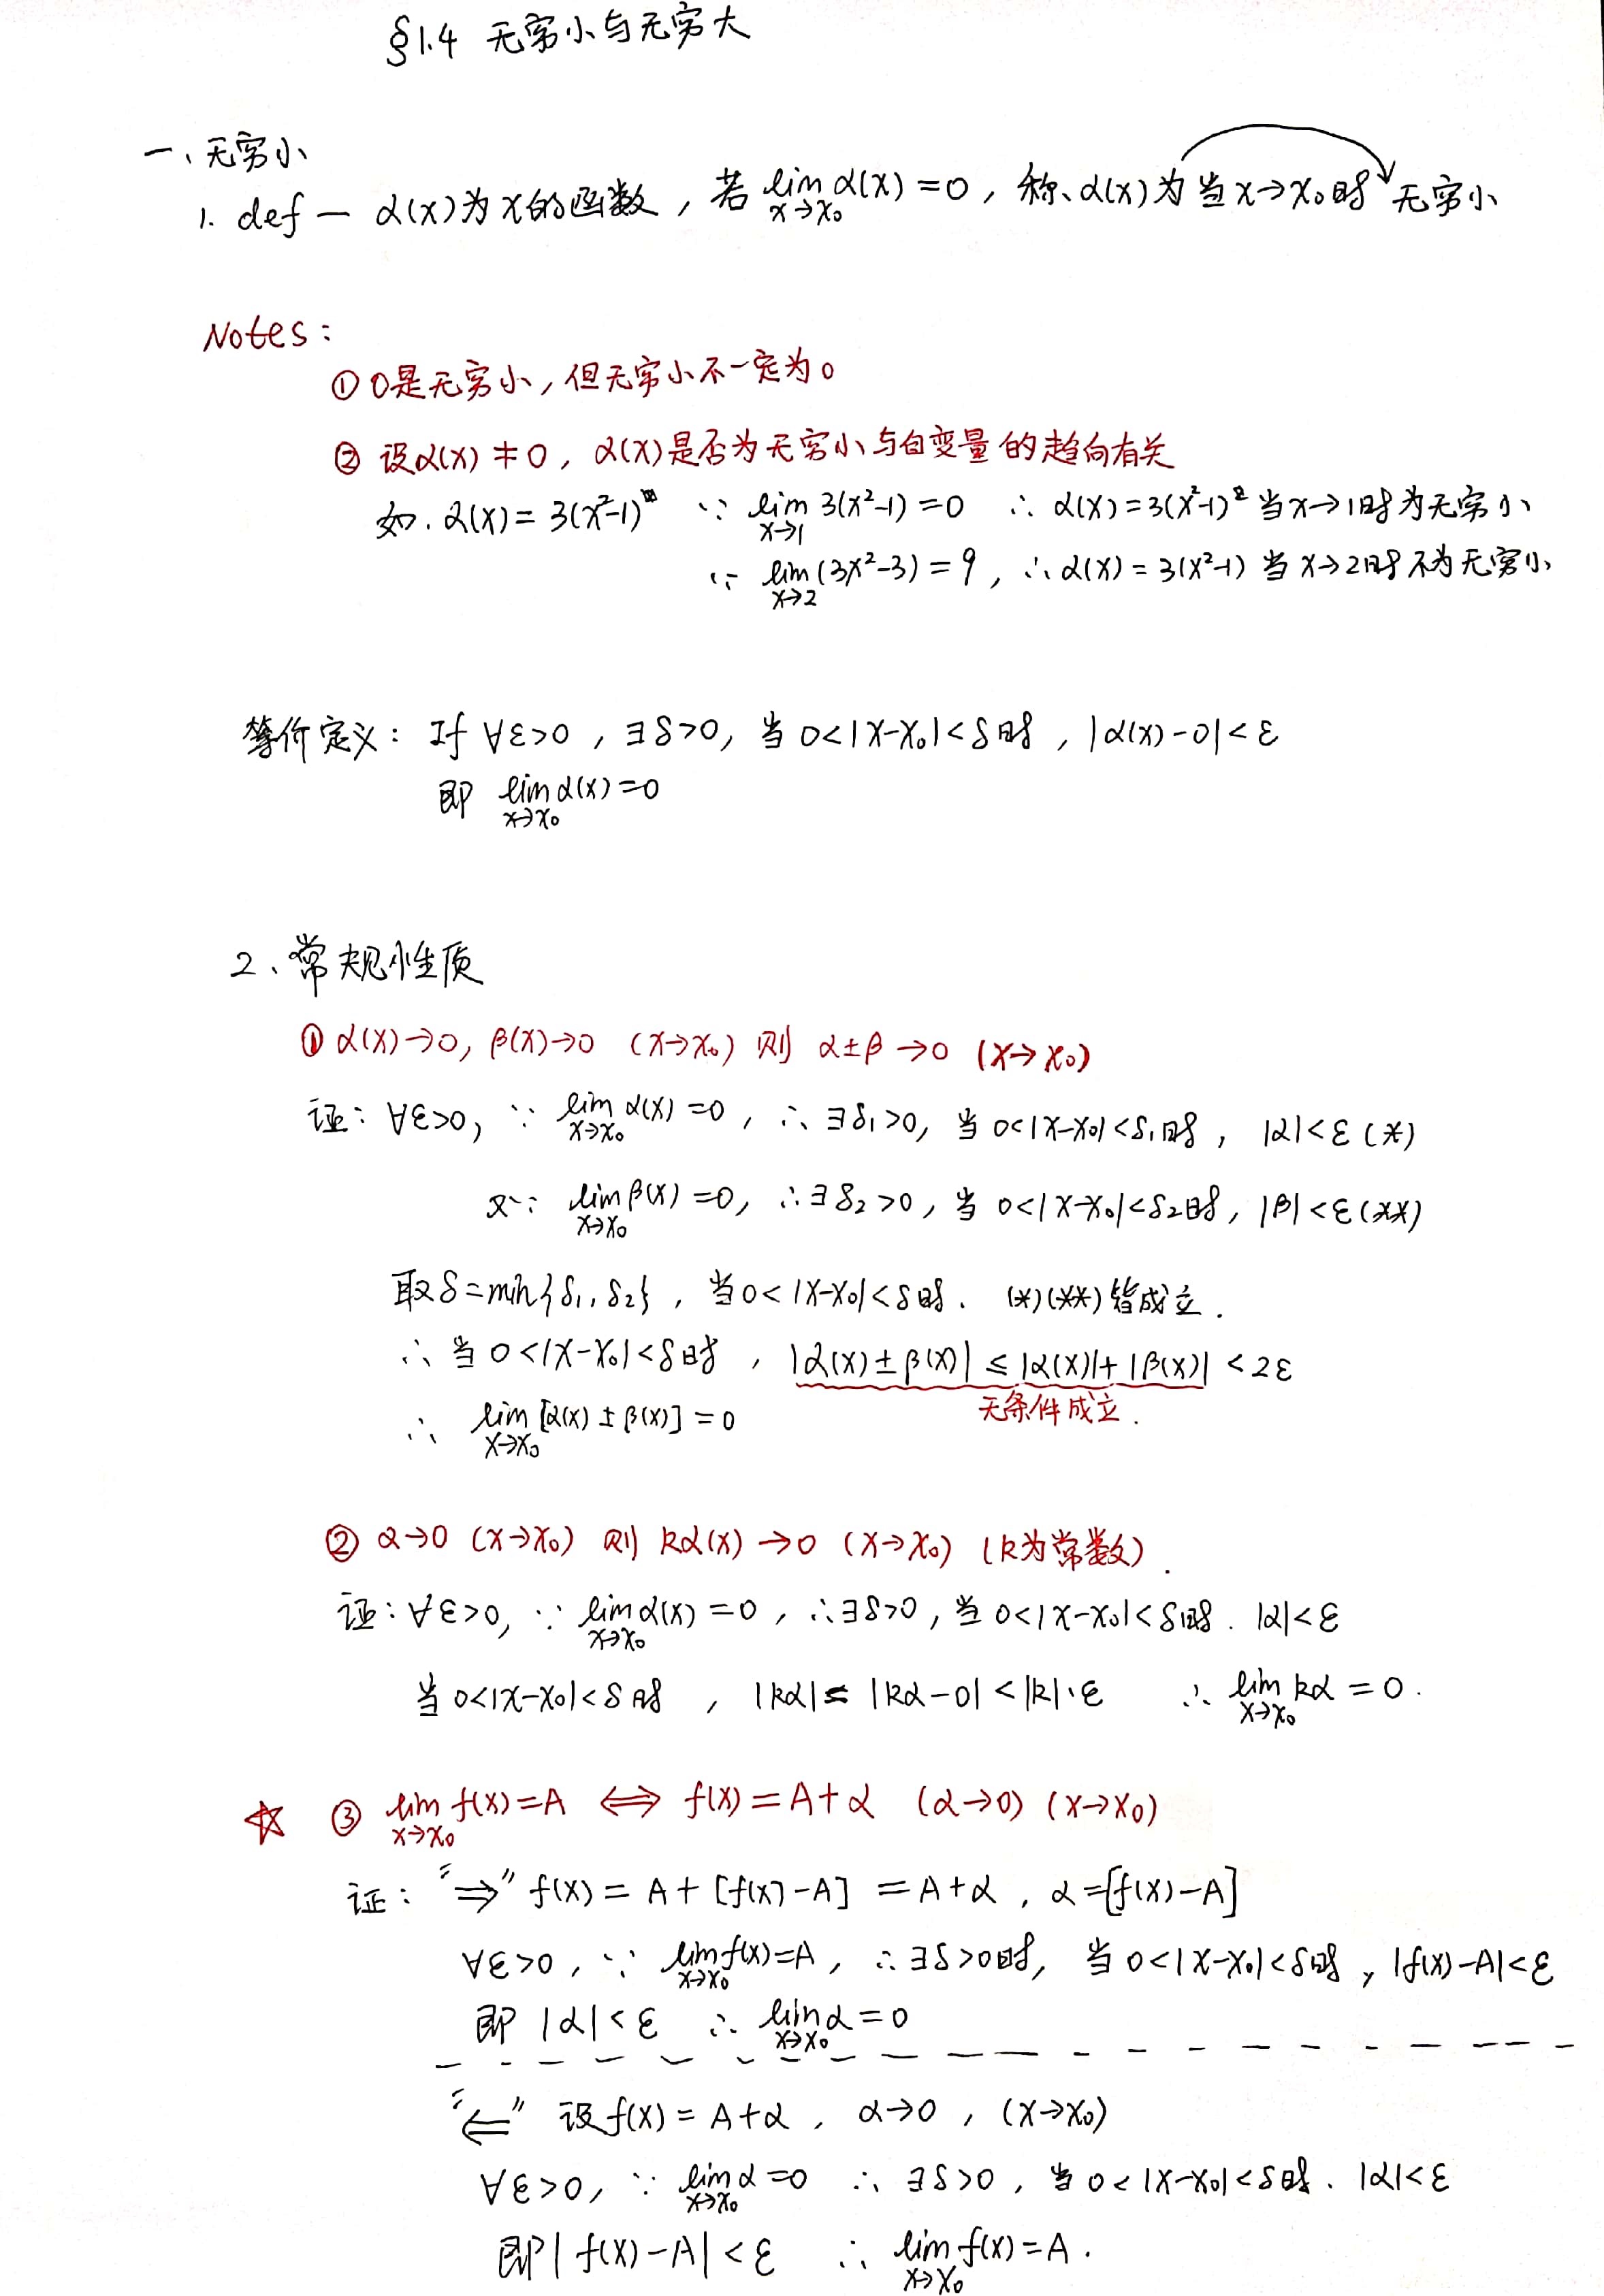 §1.4 无穷小与无穷大
一、无穷小
1. def — α(x)为x的函数，若 lim_{x→x₀} α(x)=0，称、α(x)为当x→x₀时无穷小
Notes:
① 0是无穷小，但无穷小不一定为0
② 设α(x)≠0，α(x)是否为无穷小与自变量的趋向有关
如. α(x)=3(x²-1) ∵ lim_{x→1} 3(x²-1)=0 ∴ α(x)=3(x²-1)² 当x→1时为无穷小
∵ lim_{x→2} (3x²-3)=9，∴ α(x)=3(x²-1) 当x→2时不为无穷小
等价定义: If ∀ε>0，∃δ>0，当 0<|x-x₀|<δ时，|α(x)-0|<ε
即 lim_{x→x₀} α(x)=0
2、常规性质
① α(x)→0, β(x)→0 (x→x₀) 则 α±β→0 (x→x₀)
证: ∀ε>0, ∵ lim_{x→x₀} α(x)=0，∴ ∃δ₁>0, 当 0<|x-x₀|<δ₁时，|α|<ε (*)
又∵ lim_{x→x₀} β(x)=0，∴ ∃δ₂>0，当 0<|x-x₀|<δ₂时，|β|<ε (**)
取δ=min{δ₁,δ₂}，当0<|x-x₀|<δ时. (*)(**)皆成立.
∴ 当 0<|x-x₀|<δ时，|α(x)±β(x)| ≤ |α(x)|+|β(x)| < 2ε
无条件成立.
∴ lim_{x→x₀} [α(x)±β(x)]=0
② α→0 (x→x₀) 则 kα(x)→0 (x→x₀) (k为常数).
证: ∀ε>0, ∵ lim_{x→x₀} α(x)=0，∴ ∃δ>0，当 0<|x-x₀|<δ时. |α|<ε
当 0<|x-x₀|<δ时，|kα|= |kα-0|<|k|·ε ∴ lim_{x→x₀} kα=0.
☆ ③ lim_{x→x₀} f(x)=A ⟺ f(x)=A+α (α→0) (x→x₀)
证: "⇒" f(x)=A+[f(x)-A] =A+α，α=[f(x)-A]
∀ε>0，∵ lim_{x→x₀} f(x)=A，∴ ∃δ>0时，当 0<|x-x₀|<δ时，|f(x)-A|<ε
即 |α|<ε ∴ lim_{x→x₀} α=0
"⇐" 设f(x)=A+α，α→0，(x→x₀)
∀ε>0，∵ lim_{x→x₀} α=0 ∴ ∃δ>0，当 0<|x-x₀|<δ时. |α|<ε
即|f(x)-A|<ε ∴ lim_{x→x₀} f(x)=A.